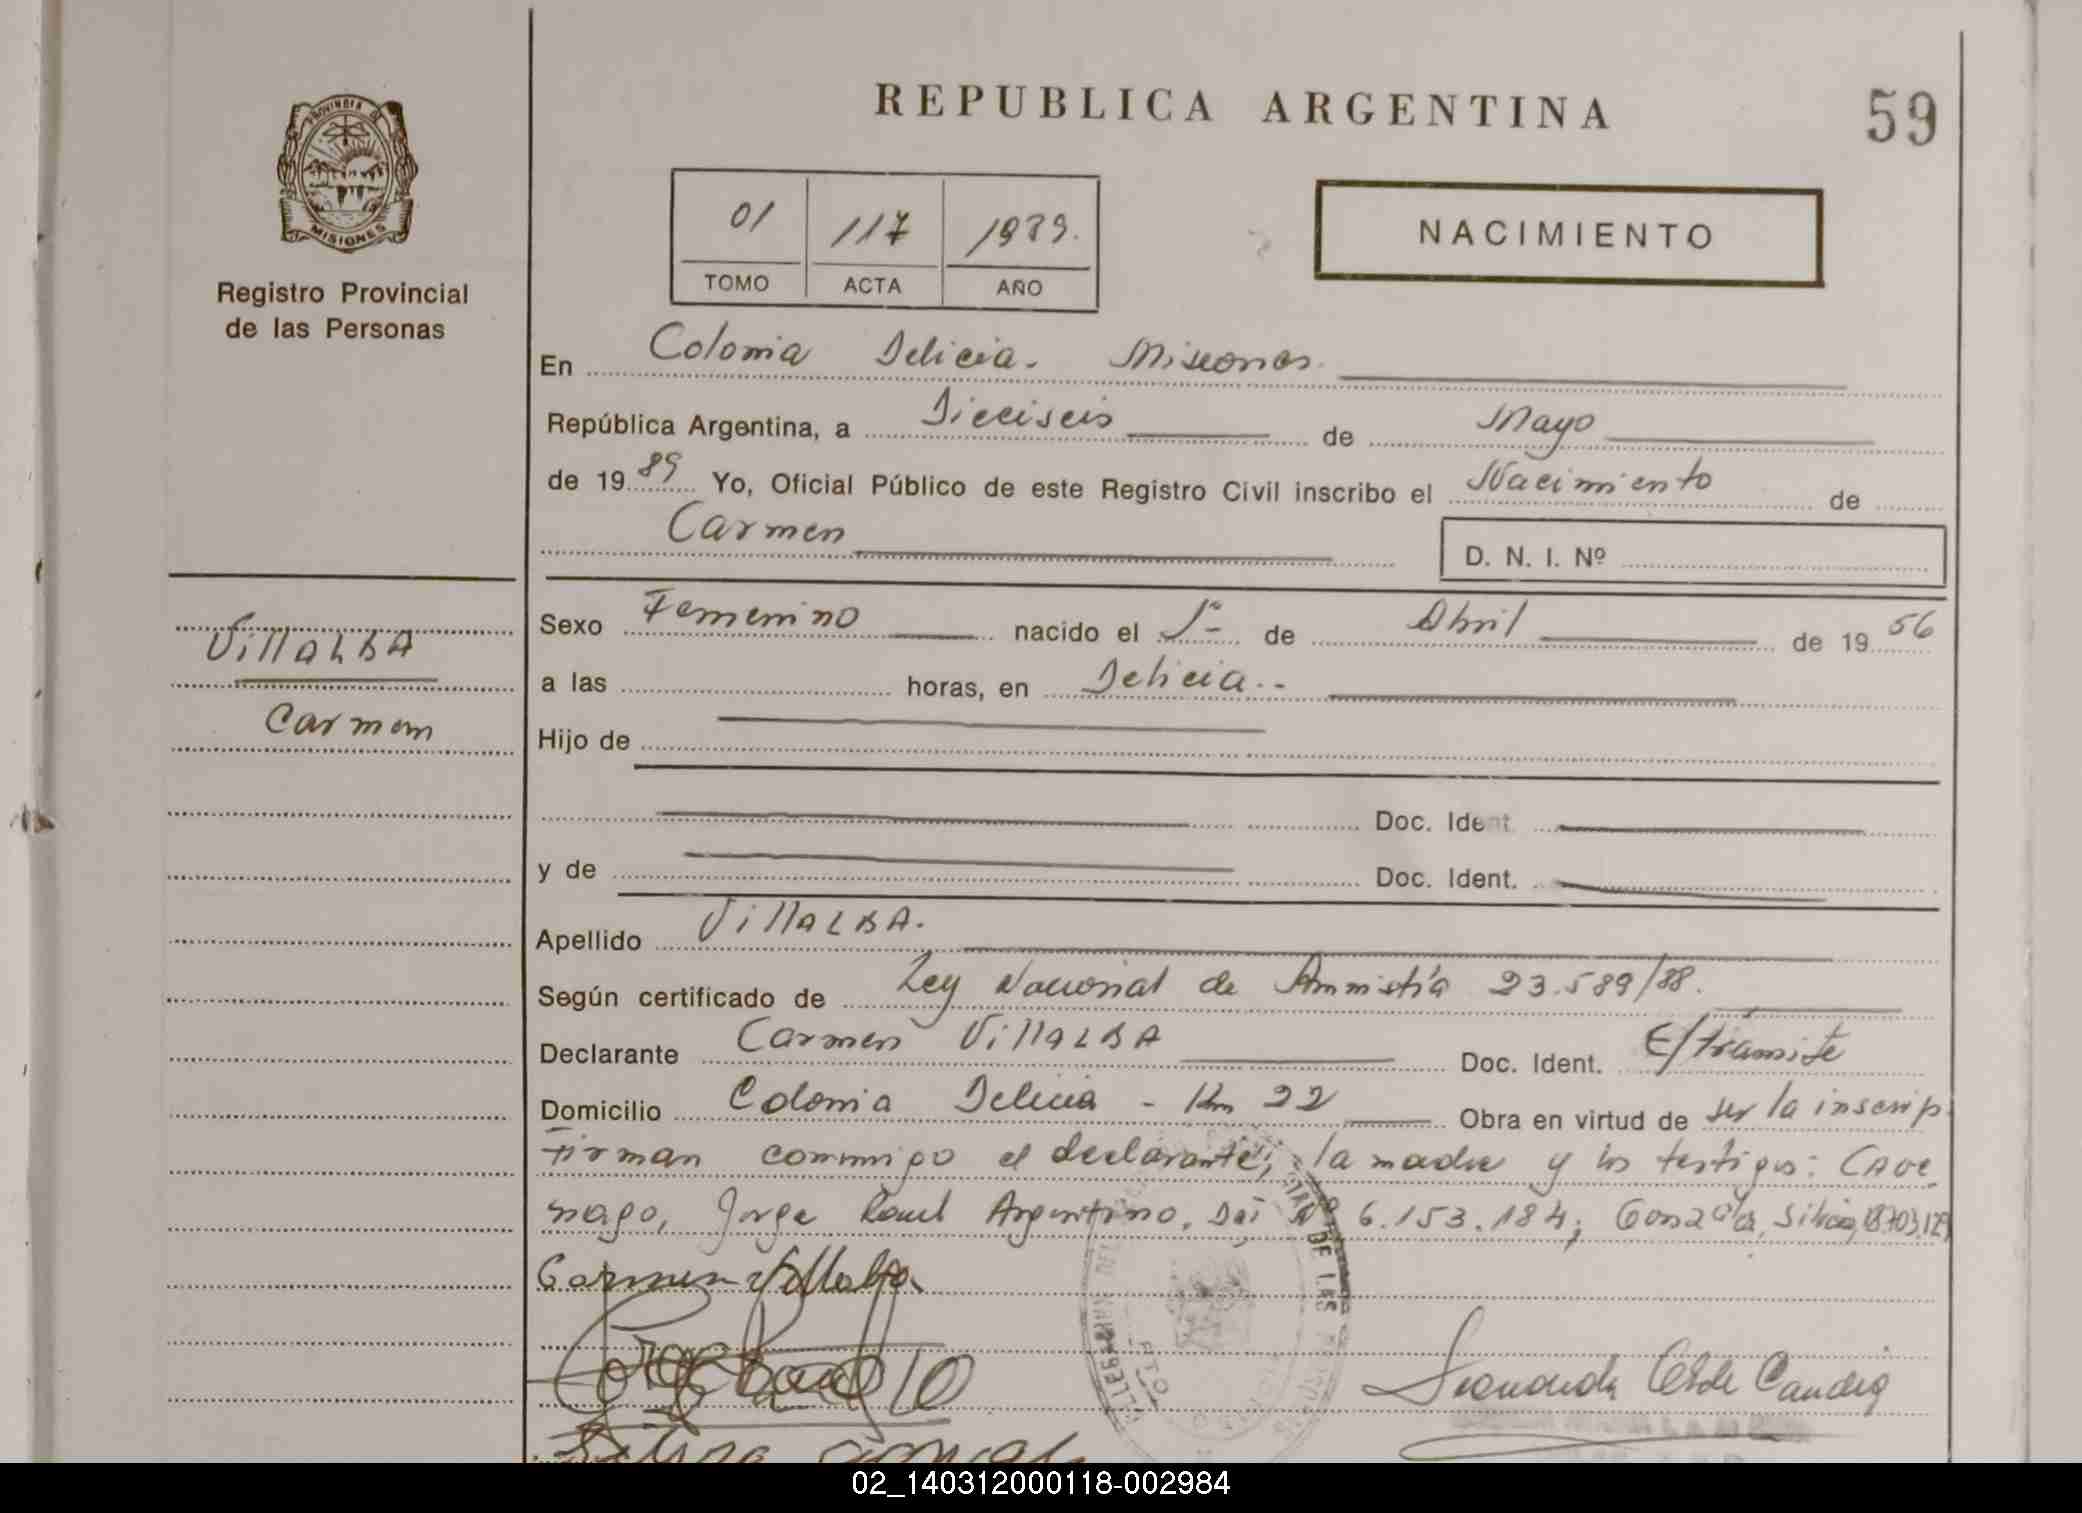 REPUBLICA ARGENTINA
59
PROVINCIA DE
MISIONES
Registro Provincial
de las Personas
01 117 1989.
TOMO ACTA AÑO
NACIMIENTO
En Colonia Delicia. Misiones.
República Argentina, a Dieciseis de Mayo
de 1989 Yo, Oficial Público de este Registro Civil inscribo el Nacimiento de
Carmen
D. N. I. Nº
Villalba
Carmen
Sexo Femenino nacido el 1º de Abril de 1956
a las horas, en Delicia.
Hijo de
Doc. Ident.
y de Doc. Ident.
Apellido VillaLBA.
Según certificado de Ley Nacional de Amnistía 23.589/88.
Declarante Carmen VillaLBA Doc. Ident. E/trámite
Domicilio Colonia Delicia - Km 22 Obra en virtud de ser la inscrip.
Firman conmigo el declarante, la madre y los testigos: Cave-
nago, Jorge Raul Argentino, Dni Nº 6.153.184; Gonzalez, Silvia,
Carmen Villalba.
DE LAS
02_140312000118-002984